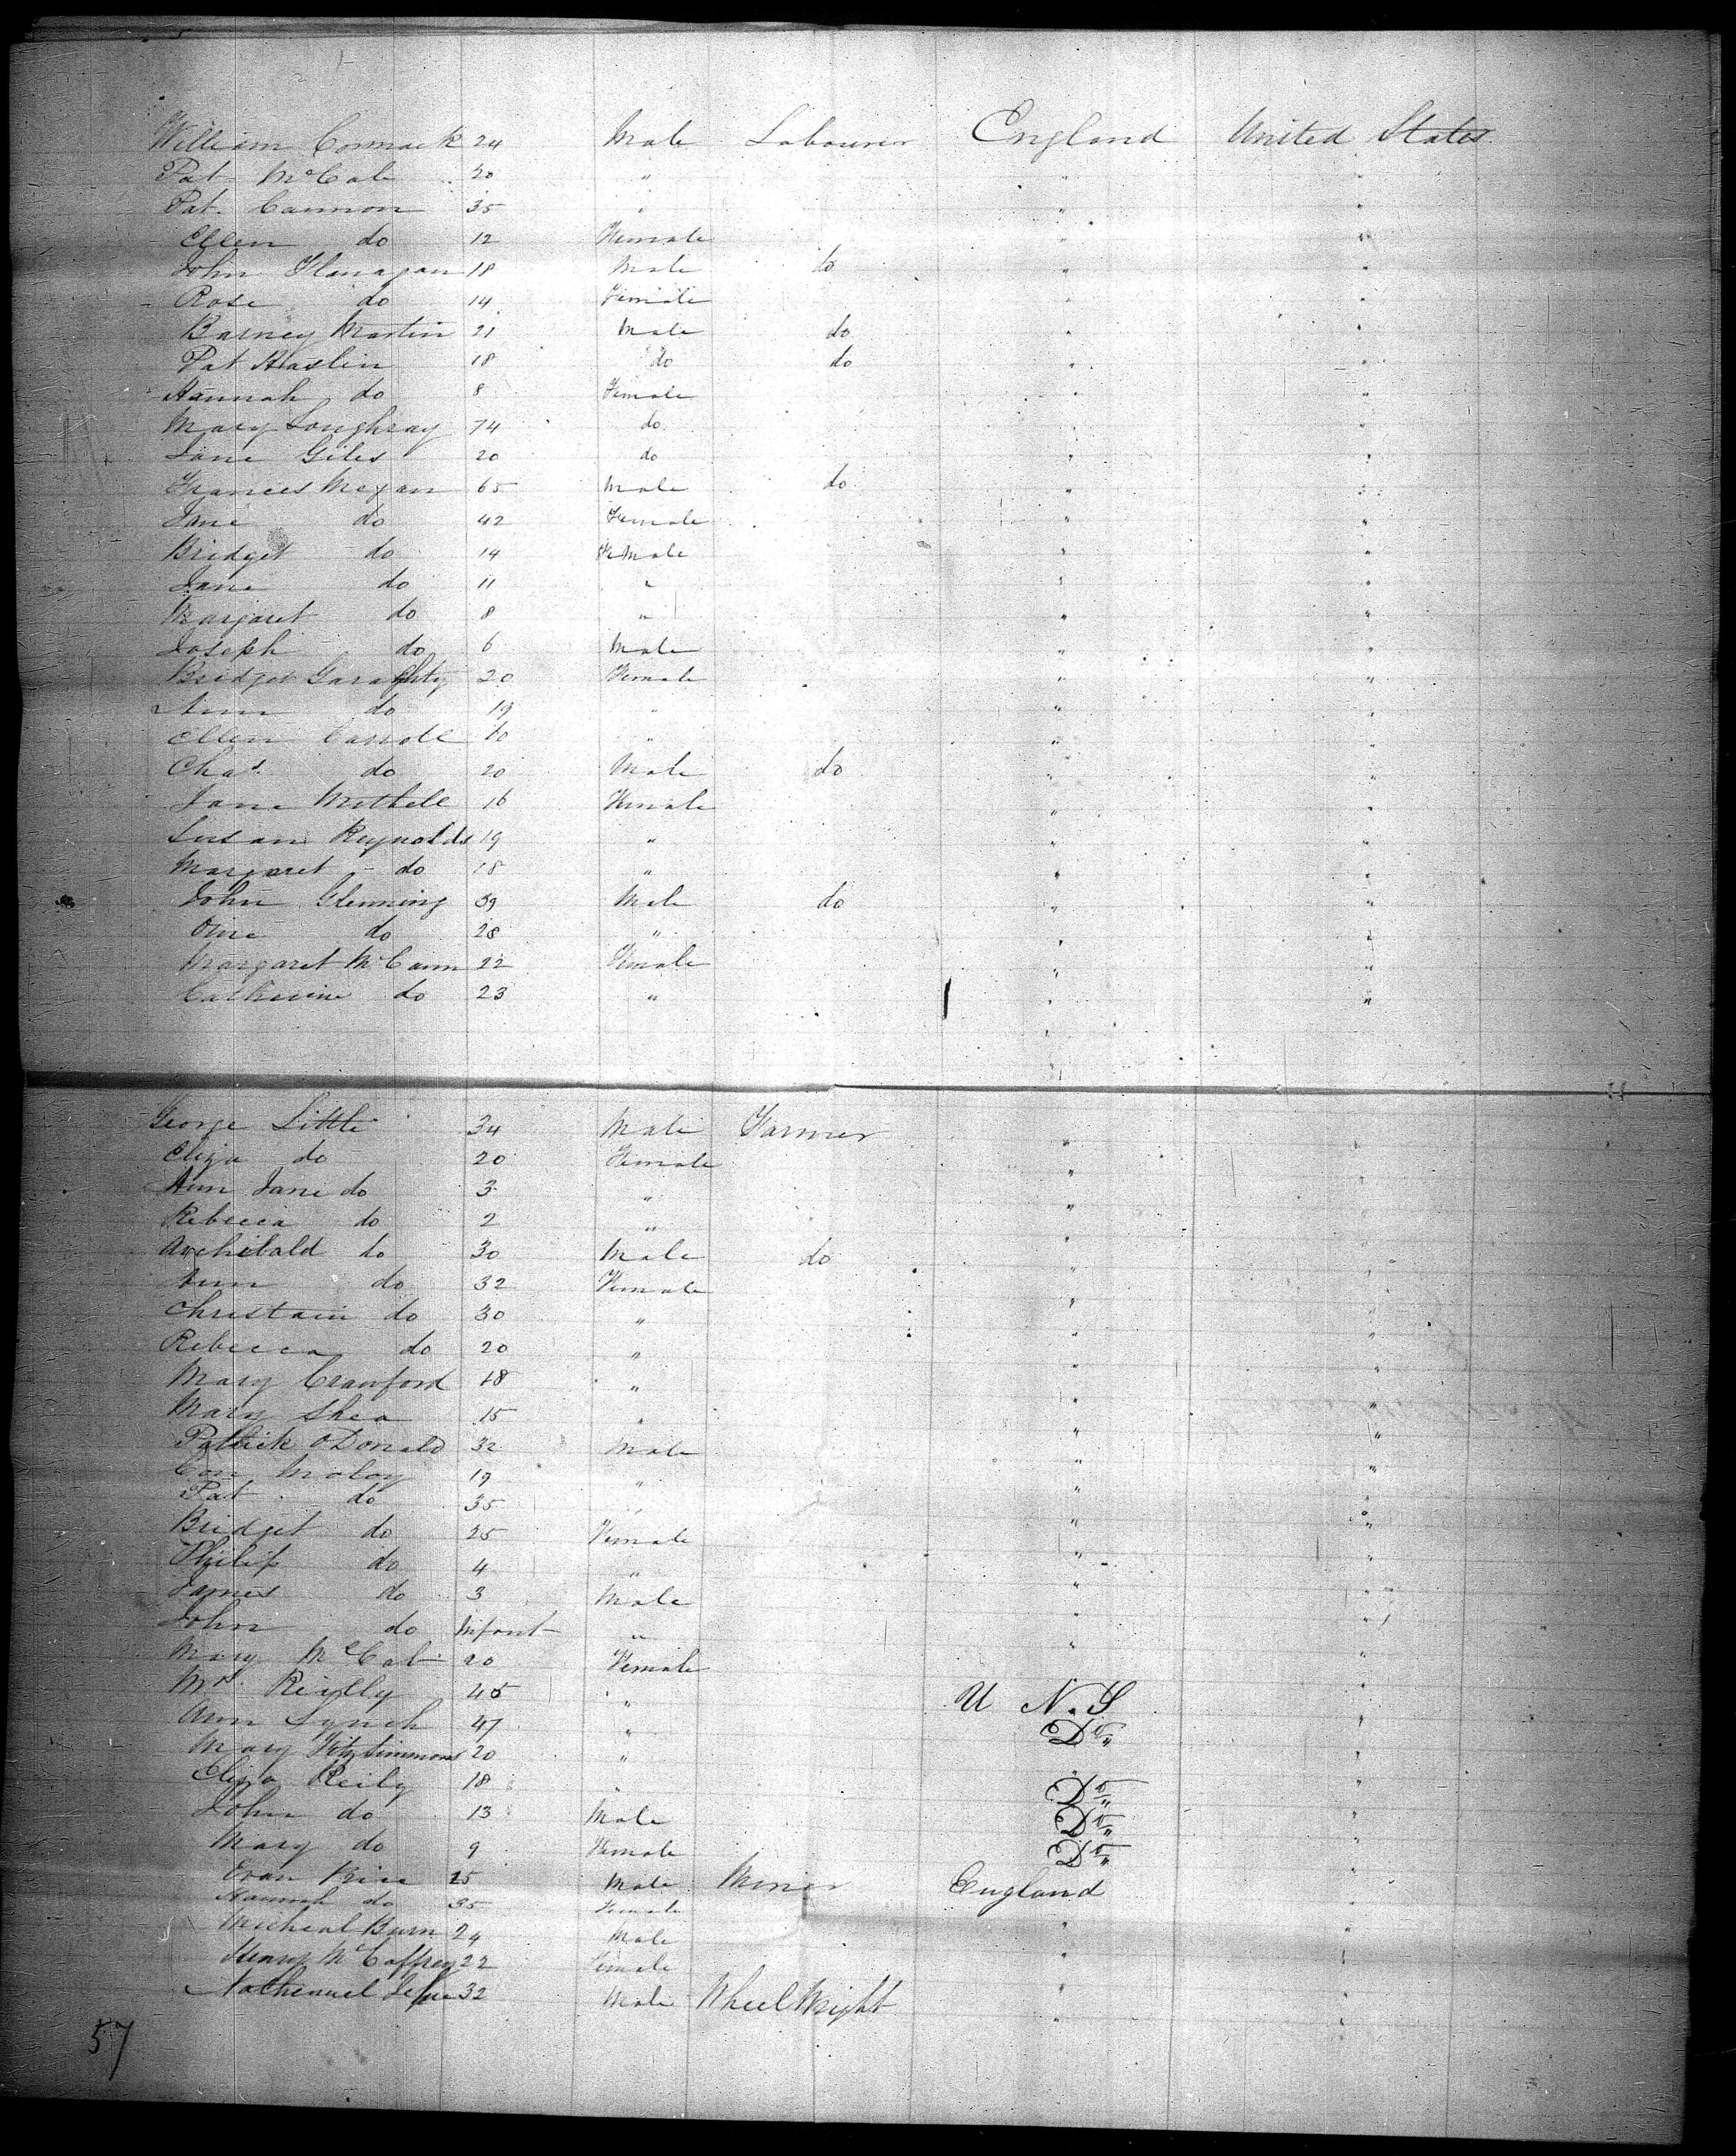 William Cormack 24 Male Labourer England United States
Pat McCabe 20 " " "
Pat. Cannon 35 " " "
Ellen do 12 Female " "
John Flanagan 18 Male do " "
Rose do 14 Female " "
Barney Martin 21 Male do " "
Pat Haslin 18 do do " "
Hannah do 8 Female " "
Mary Loughray 74 do " "
Jane Giles 20 do " "
Frances Megan 65 Male do " "
Jane do 42 Female " "
Bridget do 14 Female " "
Jane do 11 " " "
Margaret do 8 " " "
Joseph do 6 Male " "
Bridget Garaghty 20 Female " "
Ann do 19 " " "
Ellen Carroll 60 " " "
Chas. do 20 Male do " "
Jane Mithell 16 Female " "
Susan Reynolds 19 " " "
Margaret do 18 " " "
John Glenning 39 Male do " "
do 28 " " "
Margaret McCann 22 Female " "
Catherine do 23 " " "
George Little 34 Male Farmer " "
Eliza do 20 Female " "
Ann Jane do 3 " " "
Rebecca do 2 " " "
Archibald do 30 Male do " "
Ann do 32 Female " "
Christain do 30 " " "
Rebecca do 20 " " "
Mary Crawford 18 " " "
Mary Shea 15 " " "
Patrick O'Donald 32 Male " "
Con Moloy 19 " " "
Pat do 35 " " "
Bridget do 25 Female " "
Philip do 4 " " "
James do 3 Male " "
John do Infant " " "
Mary McCab 20 Female " "
Mrs. Reilly 45 " U N. S "
Ann Lynch 47 " Do " "
Mary Fitzsimmons 20 " " "
Eliza Reily 18 " Do " "
John do 13 Male Do " "
Mary do 9 Female Do " "
Evan Price 25 Male Miner England "
Hannah do 35 Female " "
Micheal Burn 24 Male " "
Henry McCaffrey 22 Female " "
Nathenuel 32 Male Wheel Wright " "
57